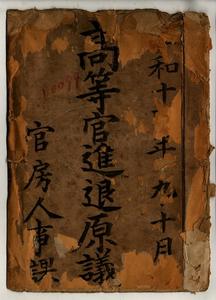 和十 年九十月
高等官進退原議
官房人事課